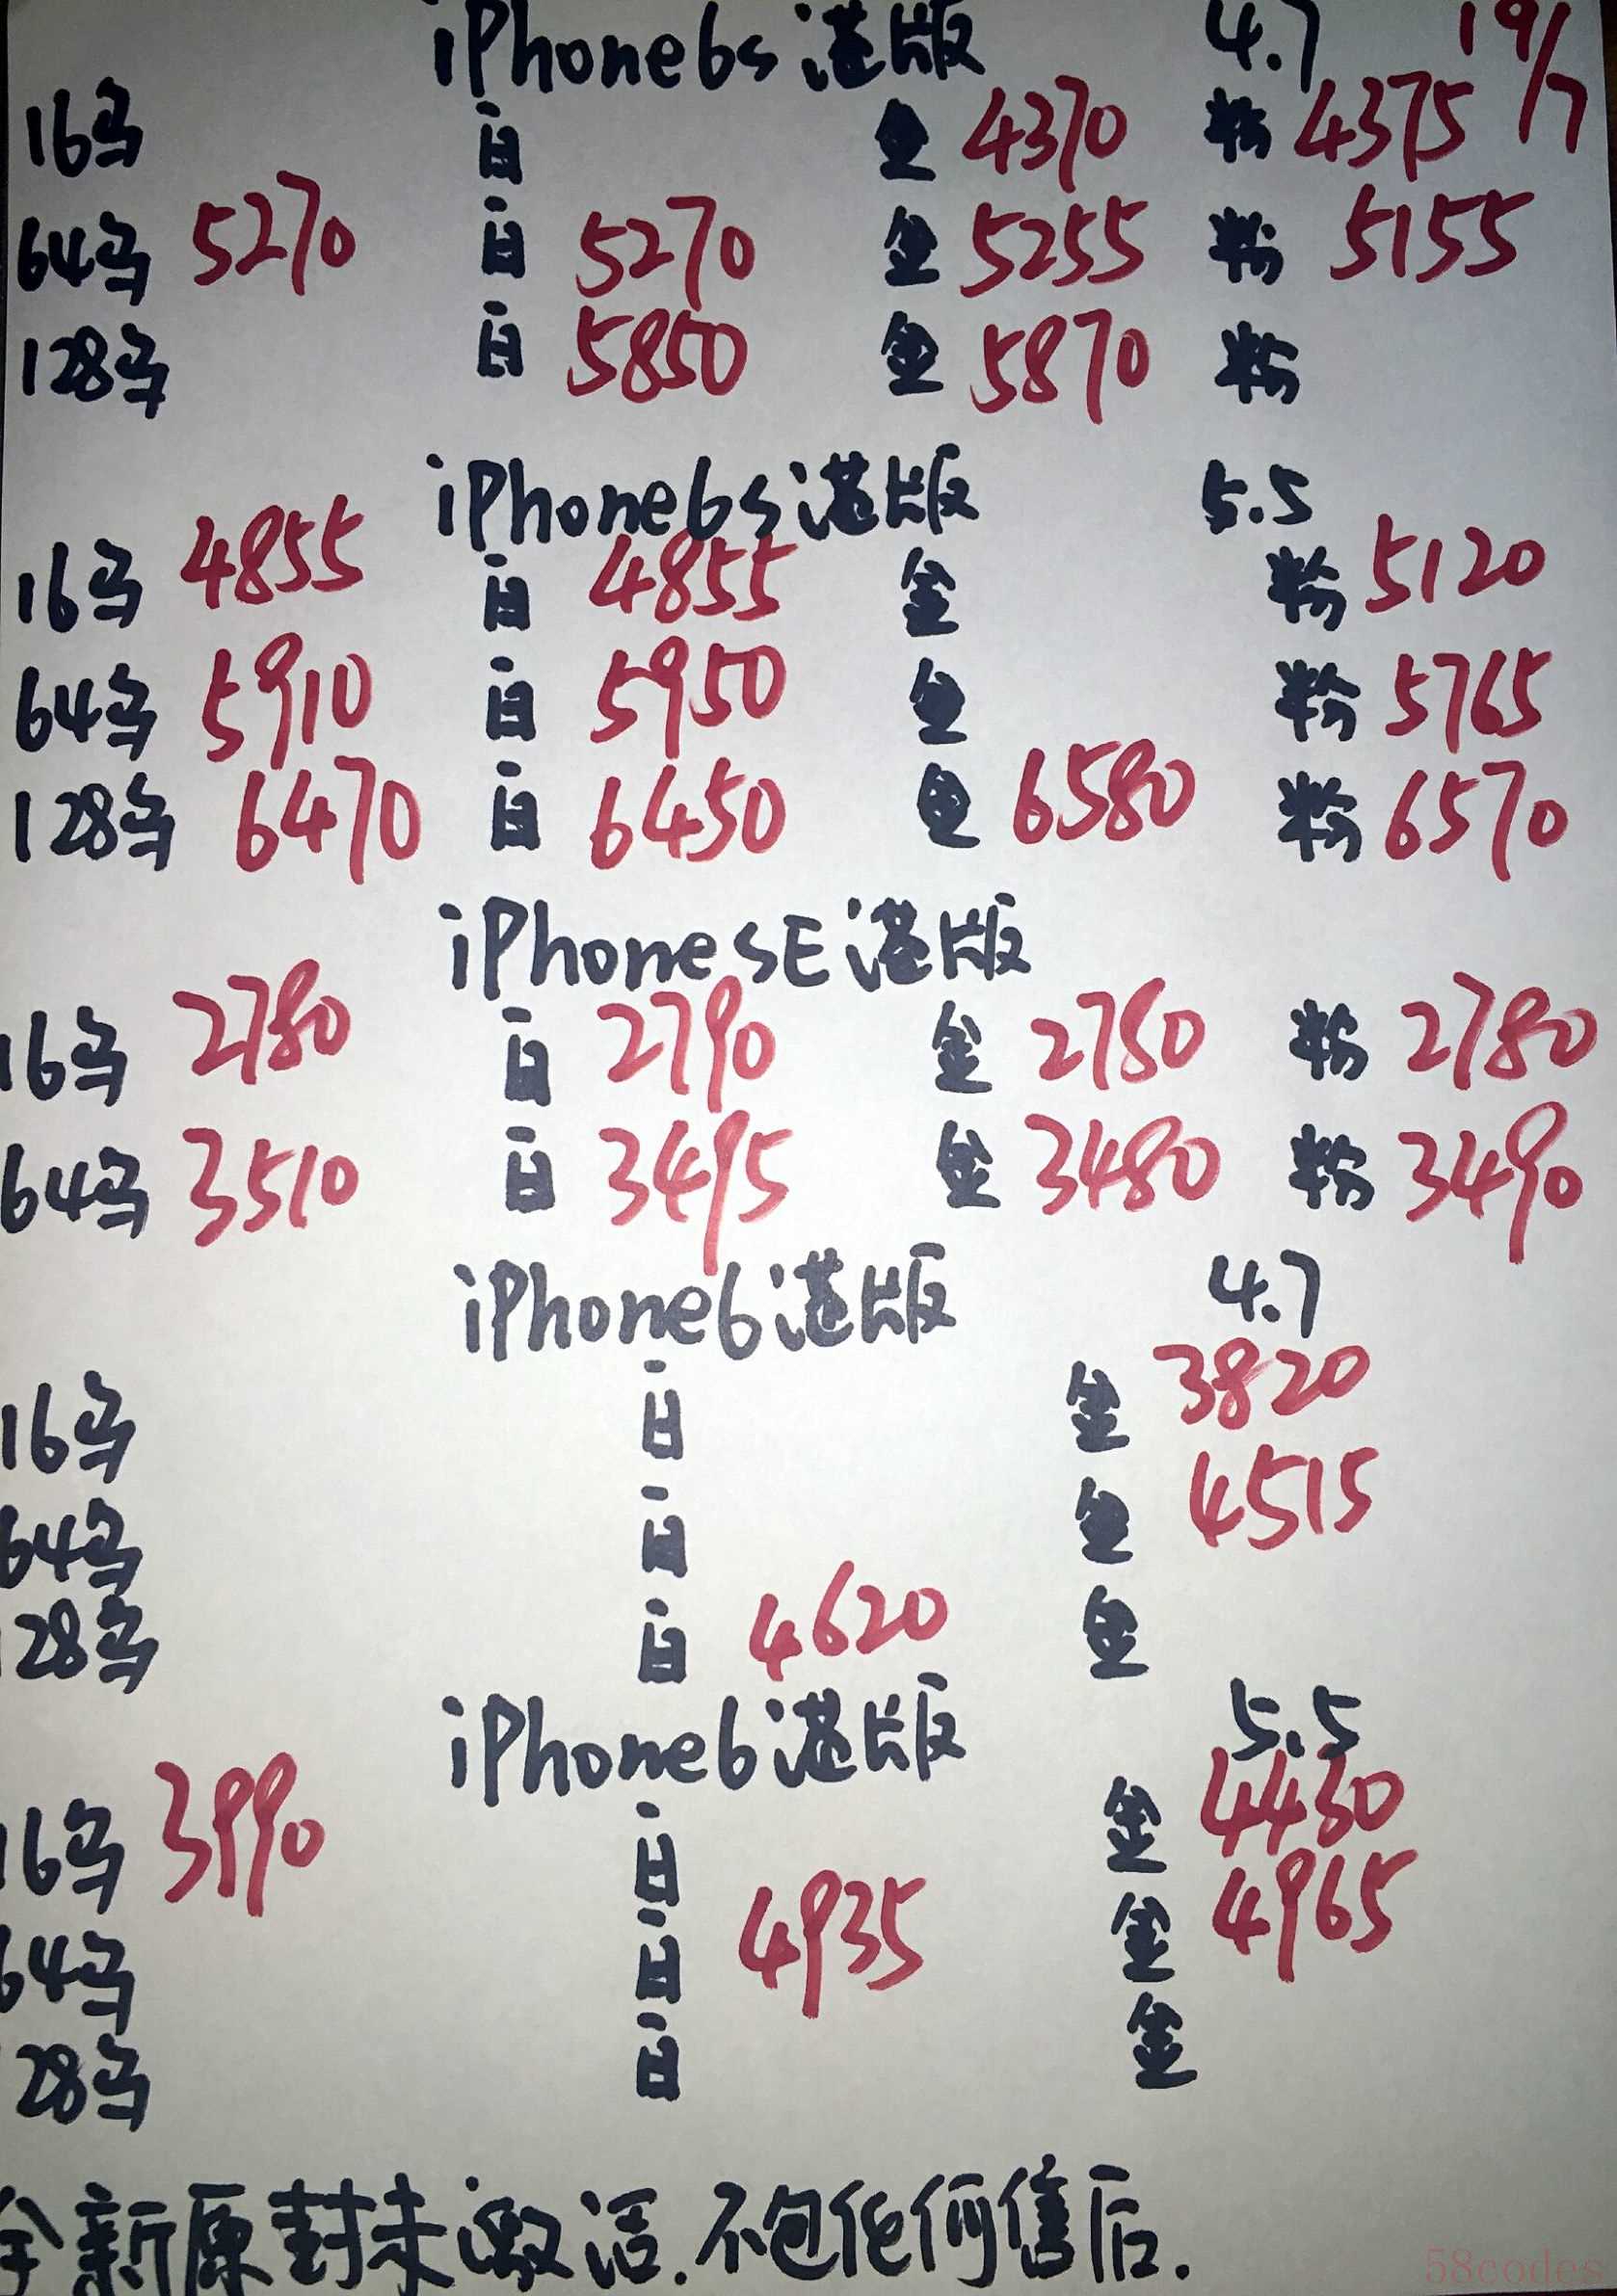 iPhone6s港版 4.7 19/7
16乌 白 金 4370 粉 4375
64乌 5270 白 5270 金 5255 粉 5155
128乌 白 5850 金 5870 粉
iPhone6s港版 5.5
16乌 4855 白 4855 金 粉 5120
64乌 5910 白 5950 金 粉 5765
128乌 6470 白 6450 金 6580 粉 6570
iPhoneSE港版
16乌 2780 白 2790 金 2780 粉 2780
64乌 3510 白 3495 金 3480 粉 3490
iPhone6港版 4.7
16乌 白 金 3820
64乌 白 金 4515
128乌 白 4620 金
iPhone6港版 5.5
16乌 3990 白 金 4430
64乌 白 4935 金 4965
128乌 白 金
全新原封未激活.不包任何售后.
58codes